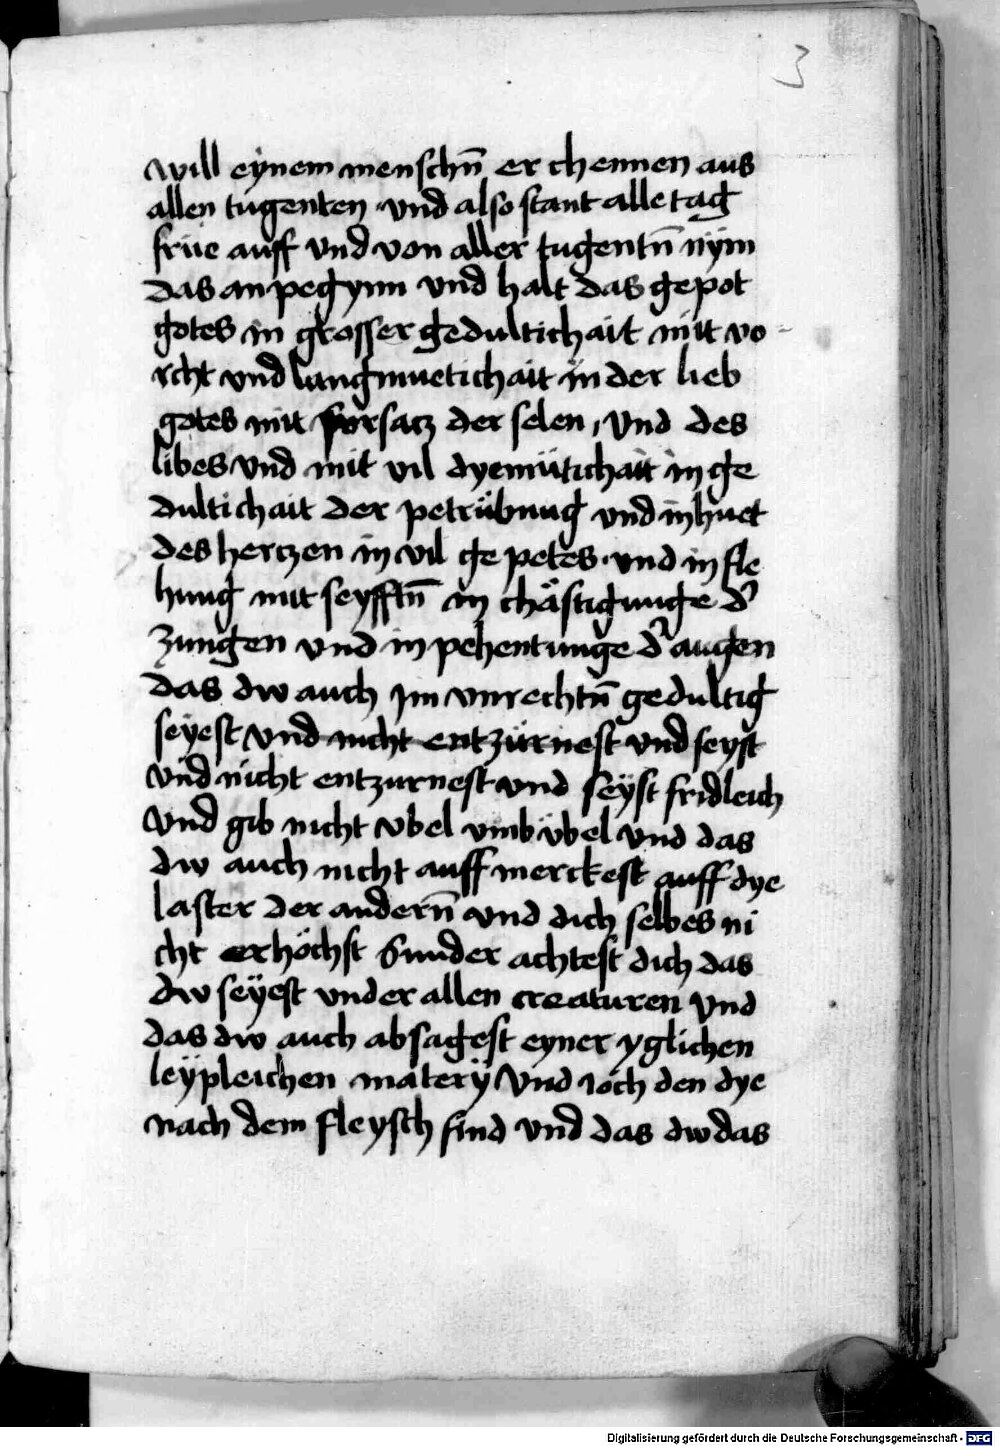 3
will eynem menschn̄ er chennen aus
allen tugenten · vnd also stant alle tag
früe auff vnd von aller tugentn̄ nÿm
das an pegynn vnd halt das gepot
gotes in grosser gedultichait mit vo-
rcht vnd langmuetichait in der lieb
gotes mit forsatz der selen, vnd des
libes vnd mit vil dyemütichait in ge
dultichait der petrübnug vnd in huet
des hertzen in vil ge petes · vnd in fle
hung mit seyfftn̄ in chästigunge d'
zungen vnd in pehentunge d' augen
das dw auch im vnrechtn̄ gedultig
seyest vnd nicht entzürnest vnd seyst
vnd nicht entzurnest vnd seÿst fridleich
vnd gib nicht vbel vmb vbel vnd das
dw auch nicht auff merckest auff dye
laster der andern̄ vnd dich selbes ni
cht erhöchst Sunder achtest dich das
dw seÿest vnder allen creaturen vnd
das dw auch absagest eyner yglichen
leÿpleichen materÿ vnd ioch den dye
nach dem fleysch sind vnd das dw das
Digitalisierung gefördert durch die Deutsche Forschungsgemeinschaft - DFG